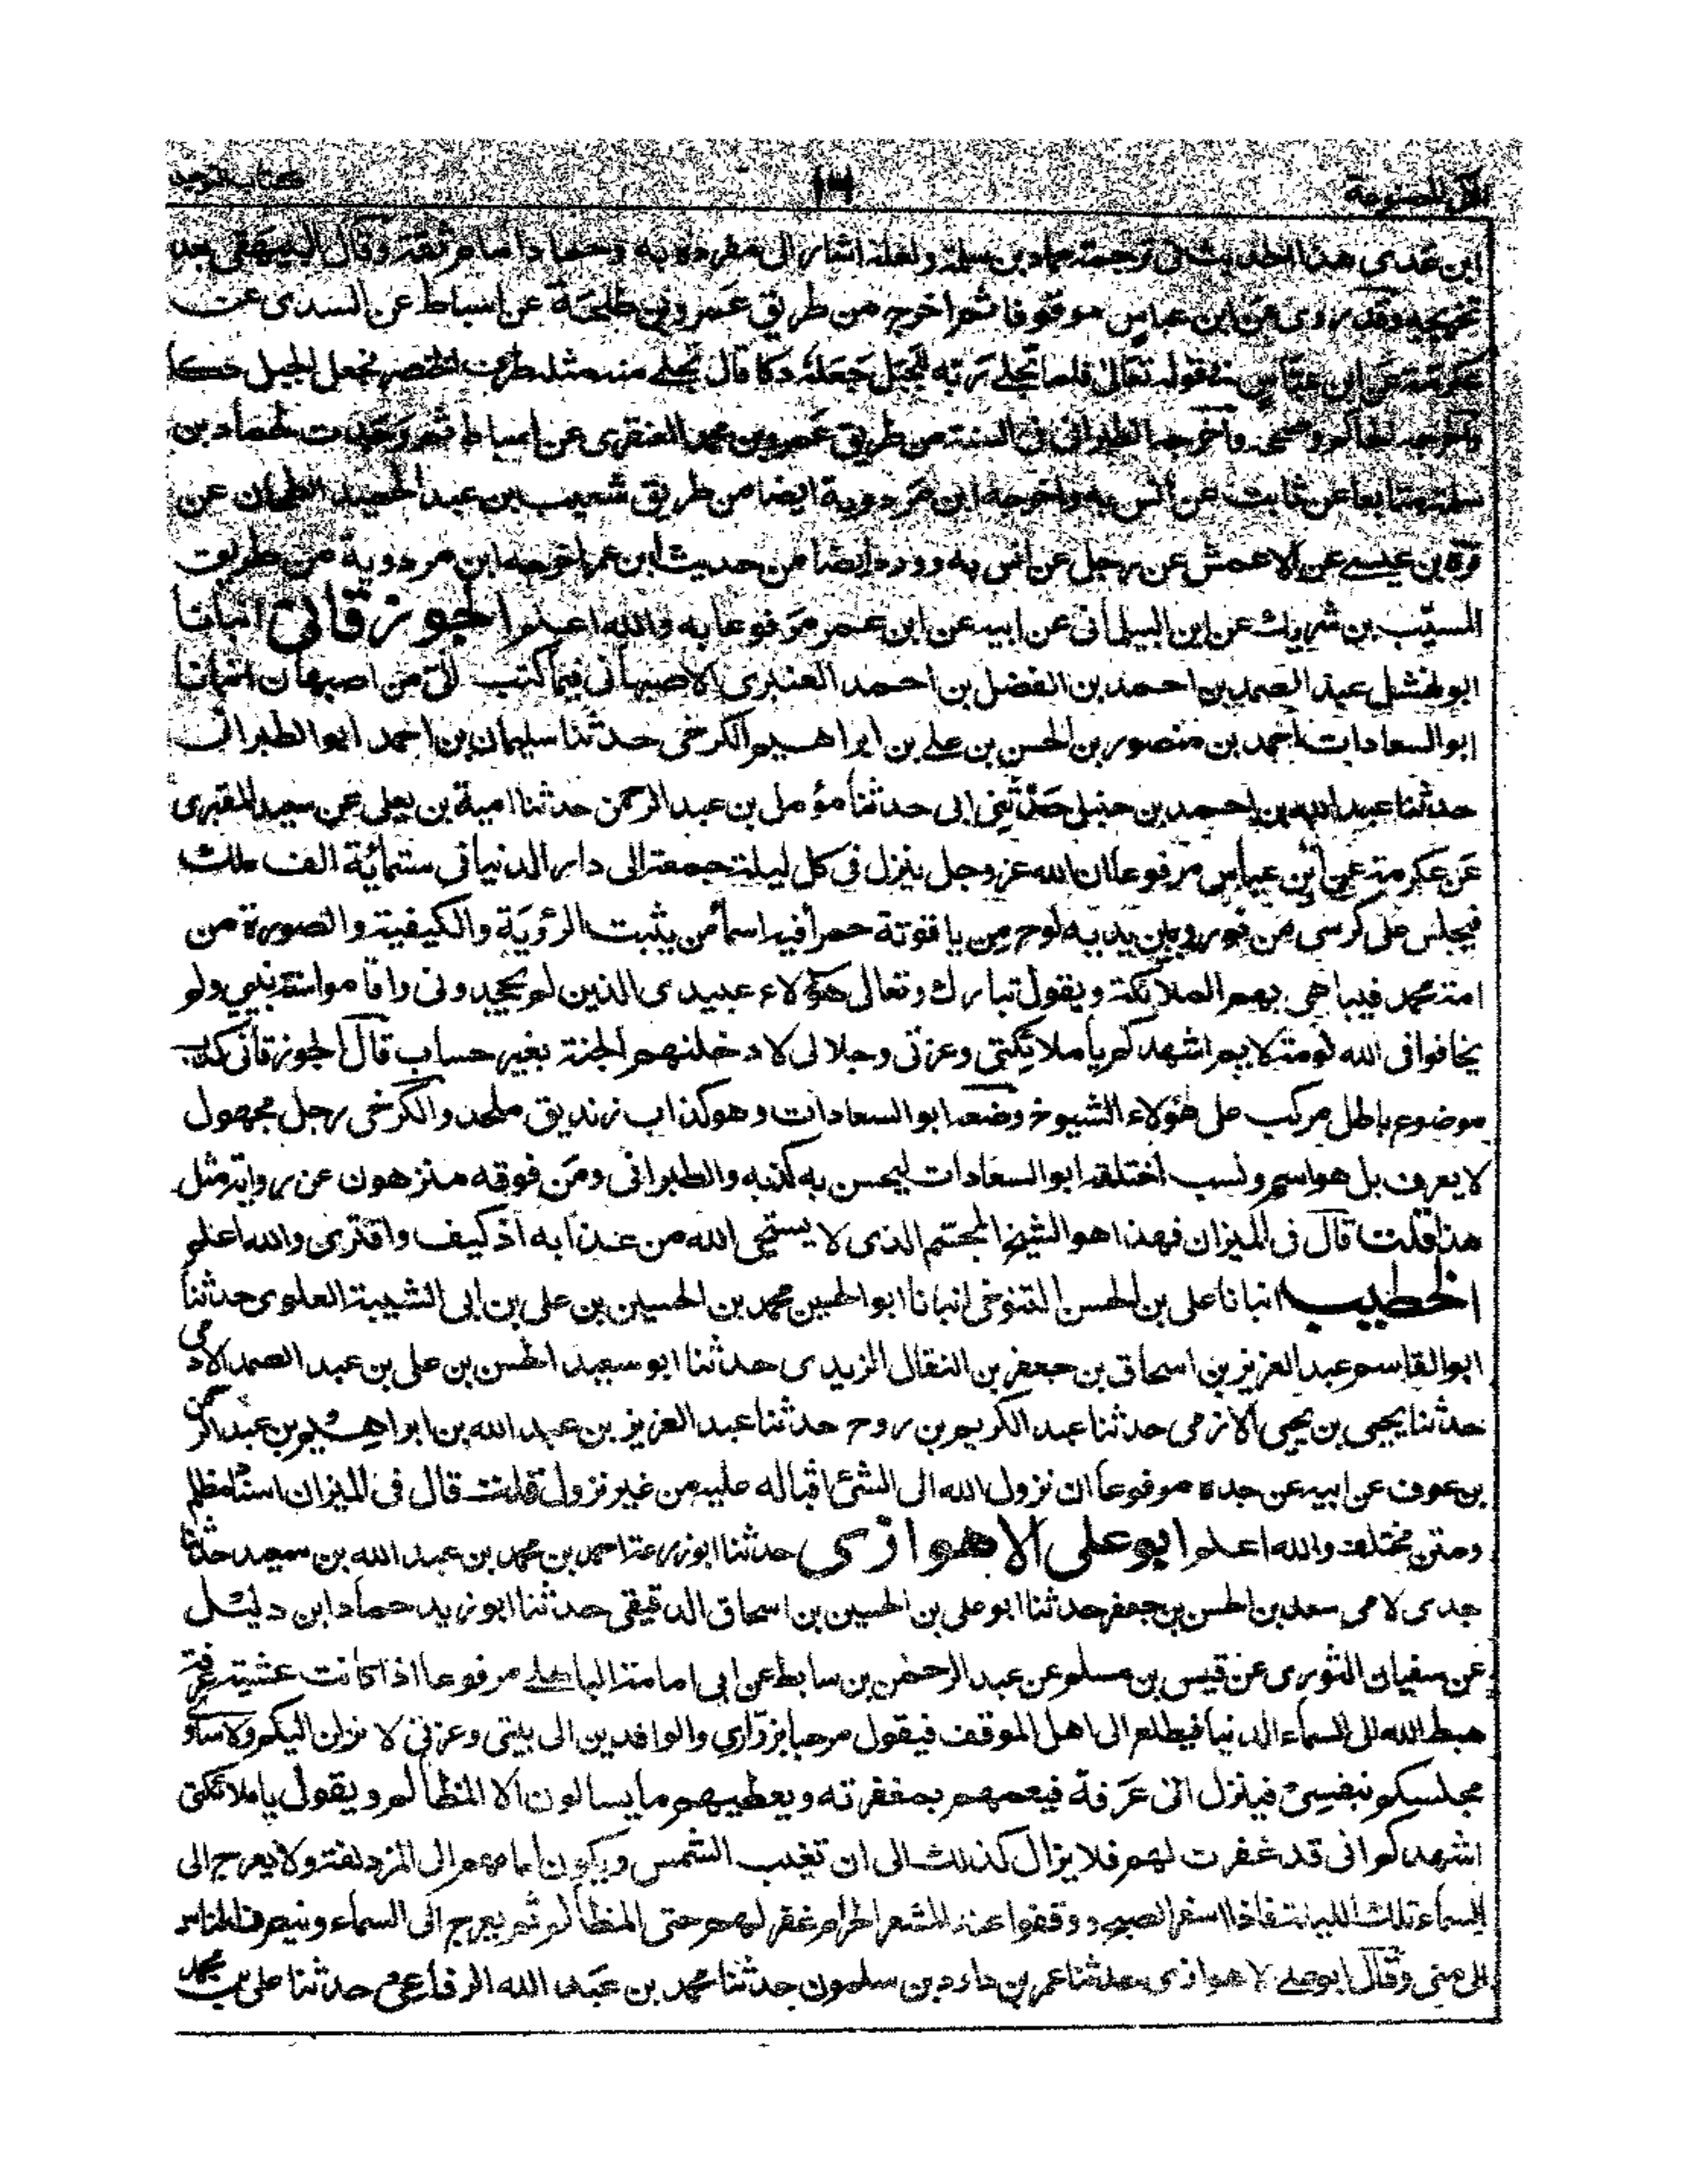 اللآلى المصنوعة ١٣ كتاب التوحيد
ابن عدى هذا الحديث فى ترجمة حماد بن سلمة ولعله اشار الى تفرده به وحماد امام ثقة وقال البيهقى بعد
تخريجه وقد روى عن ابن عباس موقوفا ثم اخرجه من طريق عمرو بن طلحة عن اسباط عن السدى عن
عكرمة عن ابن عباس فى قوله تعالى فلما تجلى ربه للجبل جعله دكا قال تجلى منه مثل طرف الخنصر فجعل الجبل دكا
واخرجه الحاكم وصححه واخرجه الطبرانى فى السنة من طريق عمرو بن محمد العنقزى عن اسباط ثم وجدت لحماد بن
سلمة متابعا عن ثابت عن انس به واخرجه ابن مردوية ايضا من طريق شعيب بن عبد الحميد الطحان عن
قرة بن عيسى عن الاعمش عن رجل عن انس به وورد ايضا من حديث ابن عمر اخرجه ابن مردوية من طريق
المسيب بن شريك عن ابن البيلمانى عن ابيه عن ابن عمر مرفوعا به والله اعلم الجوزقانى انبانا
عبد الصمد بن احمد بن الفضل بن احمد العنبرى الاصبهانى فيما كتب الى من اصبهان انبانا
ابو السعادات احمد بن منصور بن الحسن بن على بن ابراهيم الكرخى حدثنا سليمان بن احمد ابو الطبرانى
حدثنا عبد الله بن احمد بن حنبل حدثنى ابى حدثنا مؤمل بن عبد الرحمن حدثنا امية بن يعلى عن سعيد المقبرى
عن عكرمة عن ابن عباس مرفوعا ان الله عز وجل ينزل فى كل ليلة جمعة الى دار الدنيا فى ستمائة الف ملك
فيجلس على كرسى من نور وبين يديه لوح من ياقوتة حمرا فيه اسما من يثبت الرؤية والكيفية والصورة من
امة محمد فيباهى بهم الملائكة ويقول تبارك وتعالى هؤلاء عبيدى الذين لم يجحدونى واقاموا سنة نبيى ولم
يخافوا فى الله لومة لايم اشهدكم يا ملائكتى وعزتى وجلالى لادخلنهم الجنة بغير حساب قال الجوزقانى كذب
موضوع باطل مركب على هؤلاء الشيوخ وضعه ابو السعادات وهو كذاب زنديق ملحد والكرخى رجل مجهول
لا يعرف بل هو اسم ونسب اختلقه ابو السعادات ليحسن به كذبه والطبرانى ومن فوقه منزهون عن رواية مثل
هذا قلت قال فى الميزان فهذا هو الشيخ المجسم الذى لا يستحيى الله من عذابه اذ كيف وافترى والله اعلم
الخطيب انبانا على بن الحسن التنوخى انبانا ابو الحسين محمد بن الحسين بن على بن ابى الشيبة العلوى حدثنا
ابو القاسم عبد العزيز بن اسحاق بن جعفر بن النقال الزيدى حدثنا ابو سعيد الحسن بن على بن عبد الصمد الادمى
حدثنا يحيى بن يحيى الازمى حدثنا عبد الكريم بن روح حدثنا عبد العزيز بن عبد الله بن ابراهيم بن عبد الرحمن
بن عوف عن ابيه عن جده مرفوعا ان نزول الله الى الشئ اقباله عليه من غير نزول قلت قال فى الميزان اسناد مظلم
ومتن مختلق والله اعلم ابو على الاهوازى حدثنا ابو زرعة احمد بن محمد بن عبد الله بن سعيد حدثنا
جدى لامى سعد بن الحسن بن جعفر حدثنا ابو على بن الحسين بن اسحاق الدقيقى حدثنا ابو زيد حماد ابن دليل
عن سفيان الثورى عن قيس بن مسلم عن عبد الرحمن بن سابط عن ابى امامة الباهلى مرفوعا اذا كانت عشية عرفة
هبط الله الى السماء الدنيا فيطلع الى اهل الموقف فيقول مرحبا بزوّارى والوافدين الى بيتى وعزتى لا نزلن اليكم ولاساوى
مجلسكم بنفسى فينزل الى عرفة فيعمهم بمغفرته ويعطيهم ما يسالون الا المظالم ويقول يا ملائكتى
اشهدكم انى قد غفرت لهم فلا يزال كذلك الى ان تغيب الشمس ويكون امامهم الى المزدلفة ولا يعرج الى
السماء تلك الليلة فاذا اسفر الصبح ووقفوا عند المشعر الحرام غفر لهم حتى المظالم ثم يعرج الى السماء وينصرف الناس
الى منى وقال ابو على لاهوازى حدثنا عمر بن داود بن سلمون حدثنا محمد بن عبد الله الرفاعى حدثنا على بن محمد